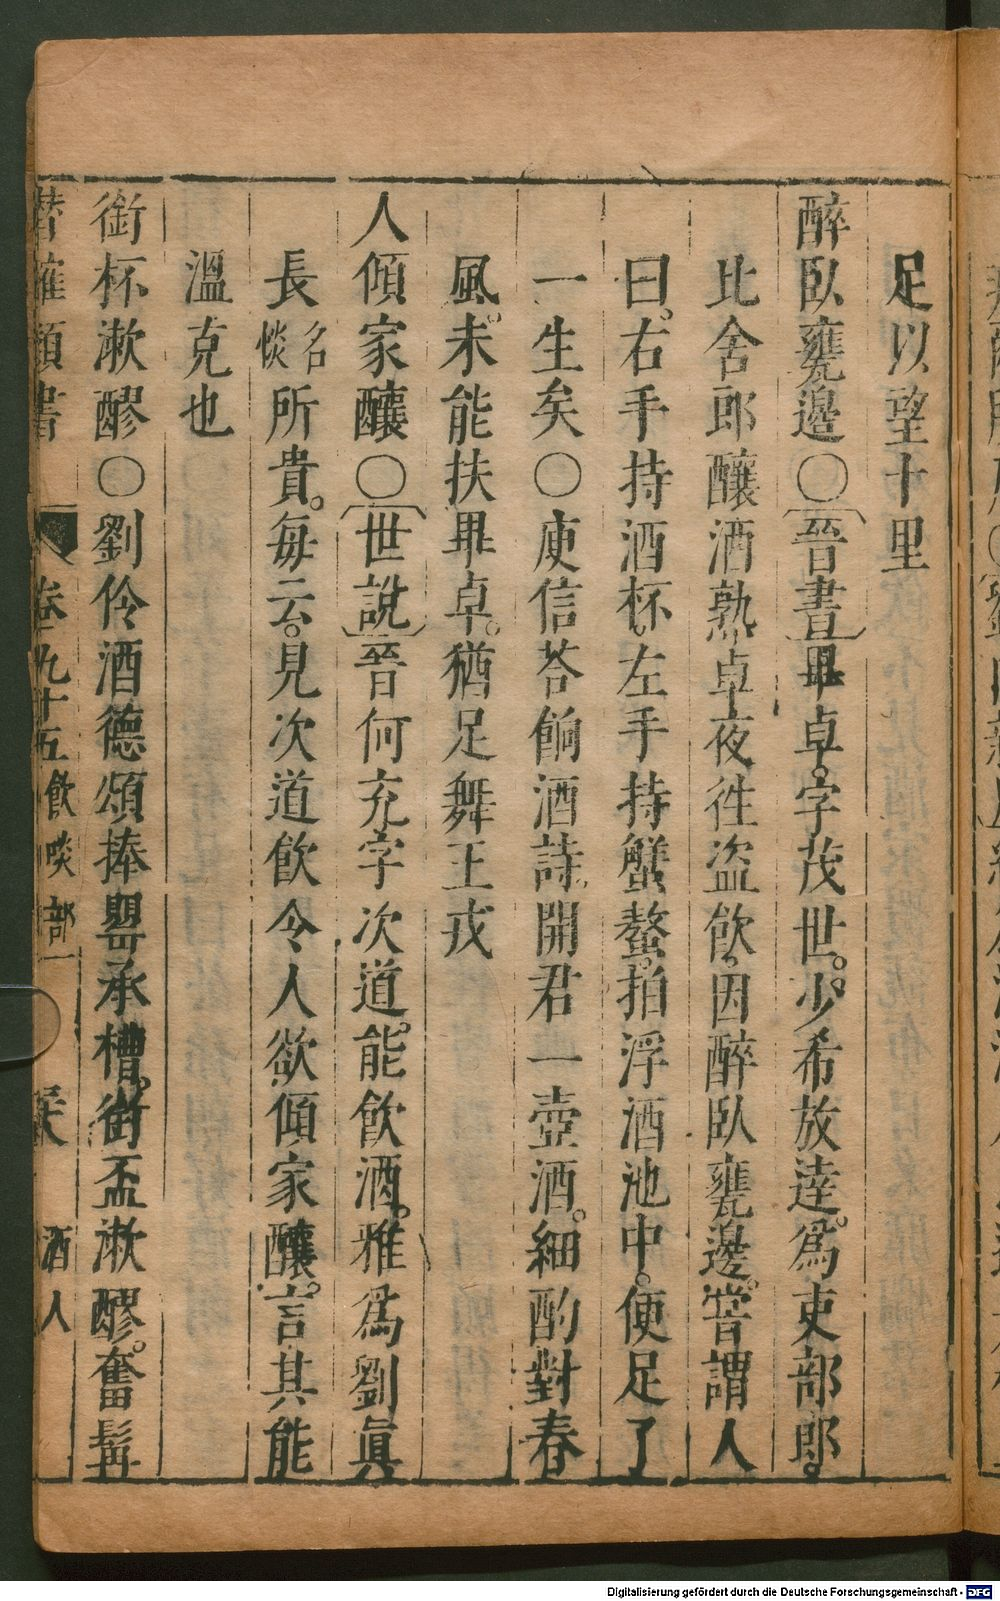 足以望十里
醉臥甕邊〇晉書畢卓。字茂世。少希放達。爲吏部郎。
比舍郎釀酒熟。卓夜徃盜飲。因醉臥甕邊。嘗謂人
曰。右手持酒杯。左手持蟹螯。拍浮酒池中。便足了
一生矣〇庾信荅餉酒詩。開君一壺酒。細酌對春
風。未能扶畢卓。猶足舞王戎
人傾家釀〇世說晉何充字次道。能飲酒。雅爲劉眞
長名惔所貴。每云。見次道飲令人欲傾家釀。言其能
溫克也
銜杯漱醪〇劉伶酒德頌捧甖承槽。銜盃漱醪。奮髯
類書 卷九十五 飲啖部一 酒人
Digitalisierung gefördert durch die Deutsche Forschungsgemeinschaft - DFG